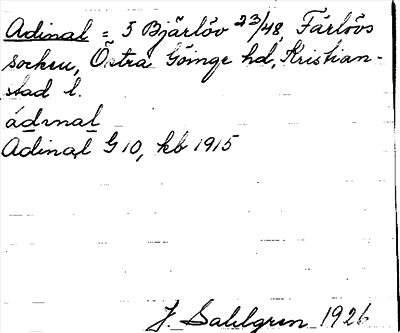 Adinal = 5 Bjärlöv 23/48, Färlövs
socken, Östra Göinge hd, Kristian-
stad l.
ádınal
Adinal G 10, kb 1915
J. Sahlgren 1926